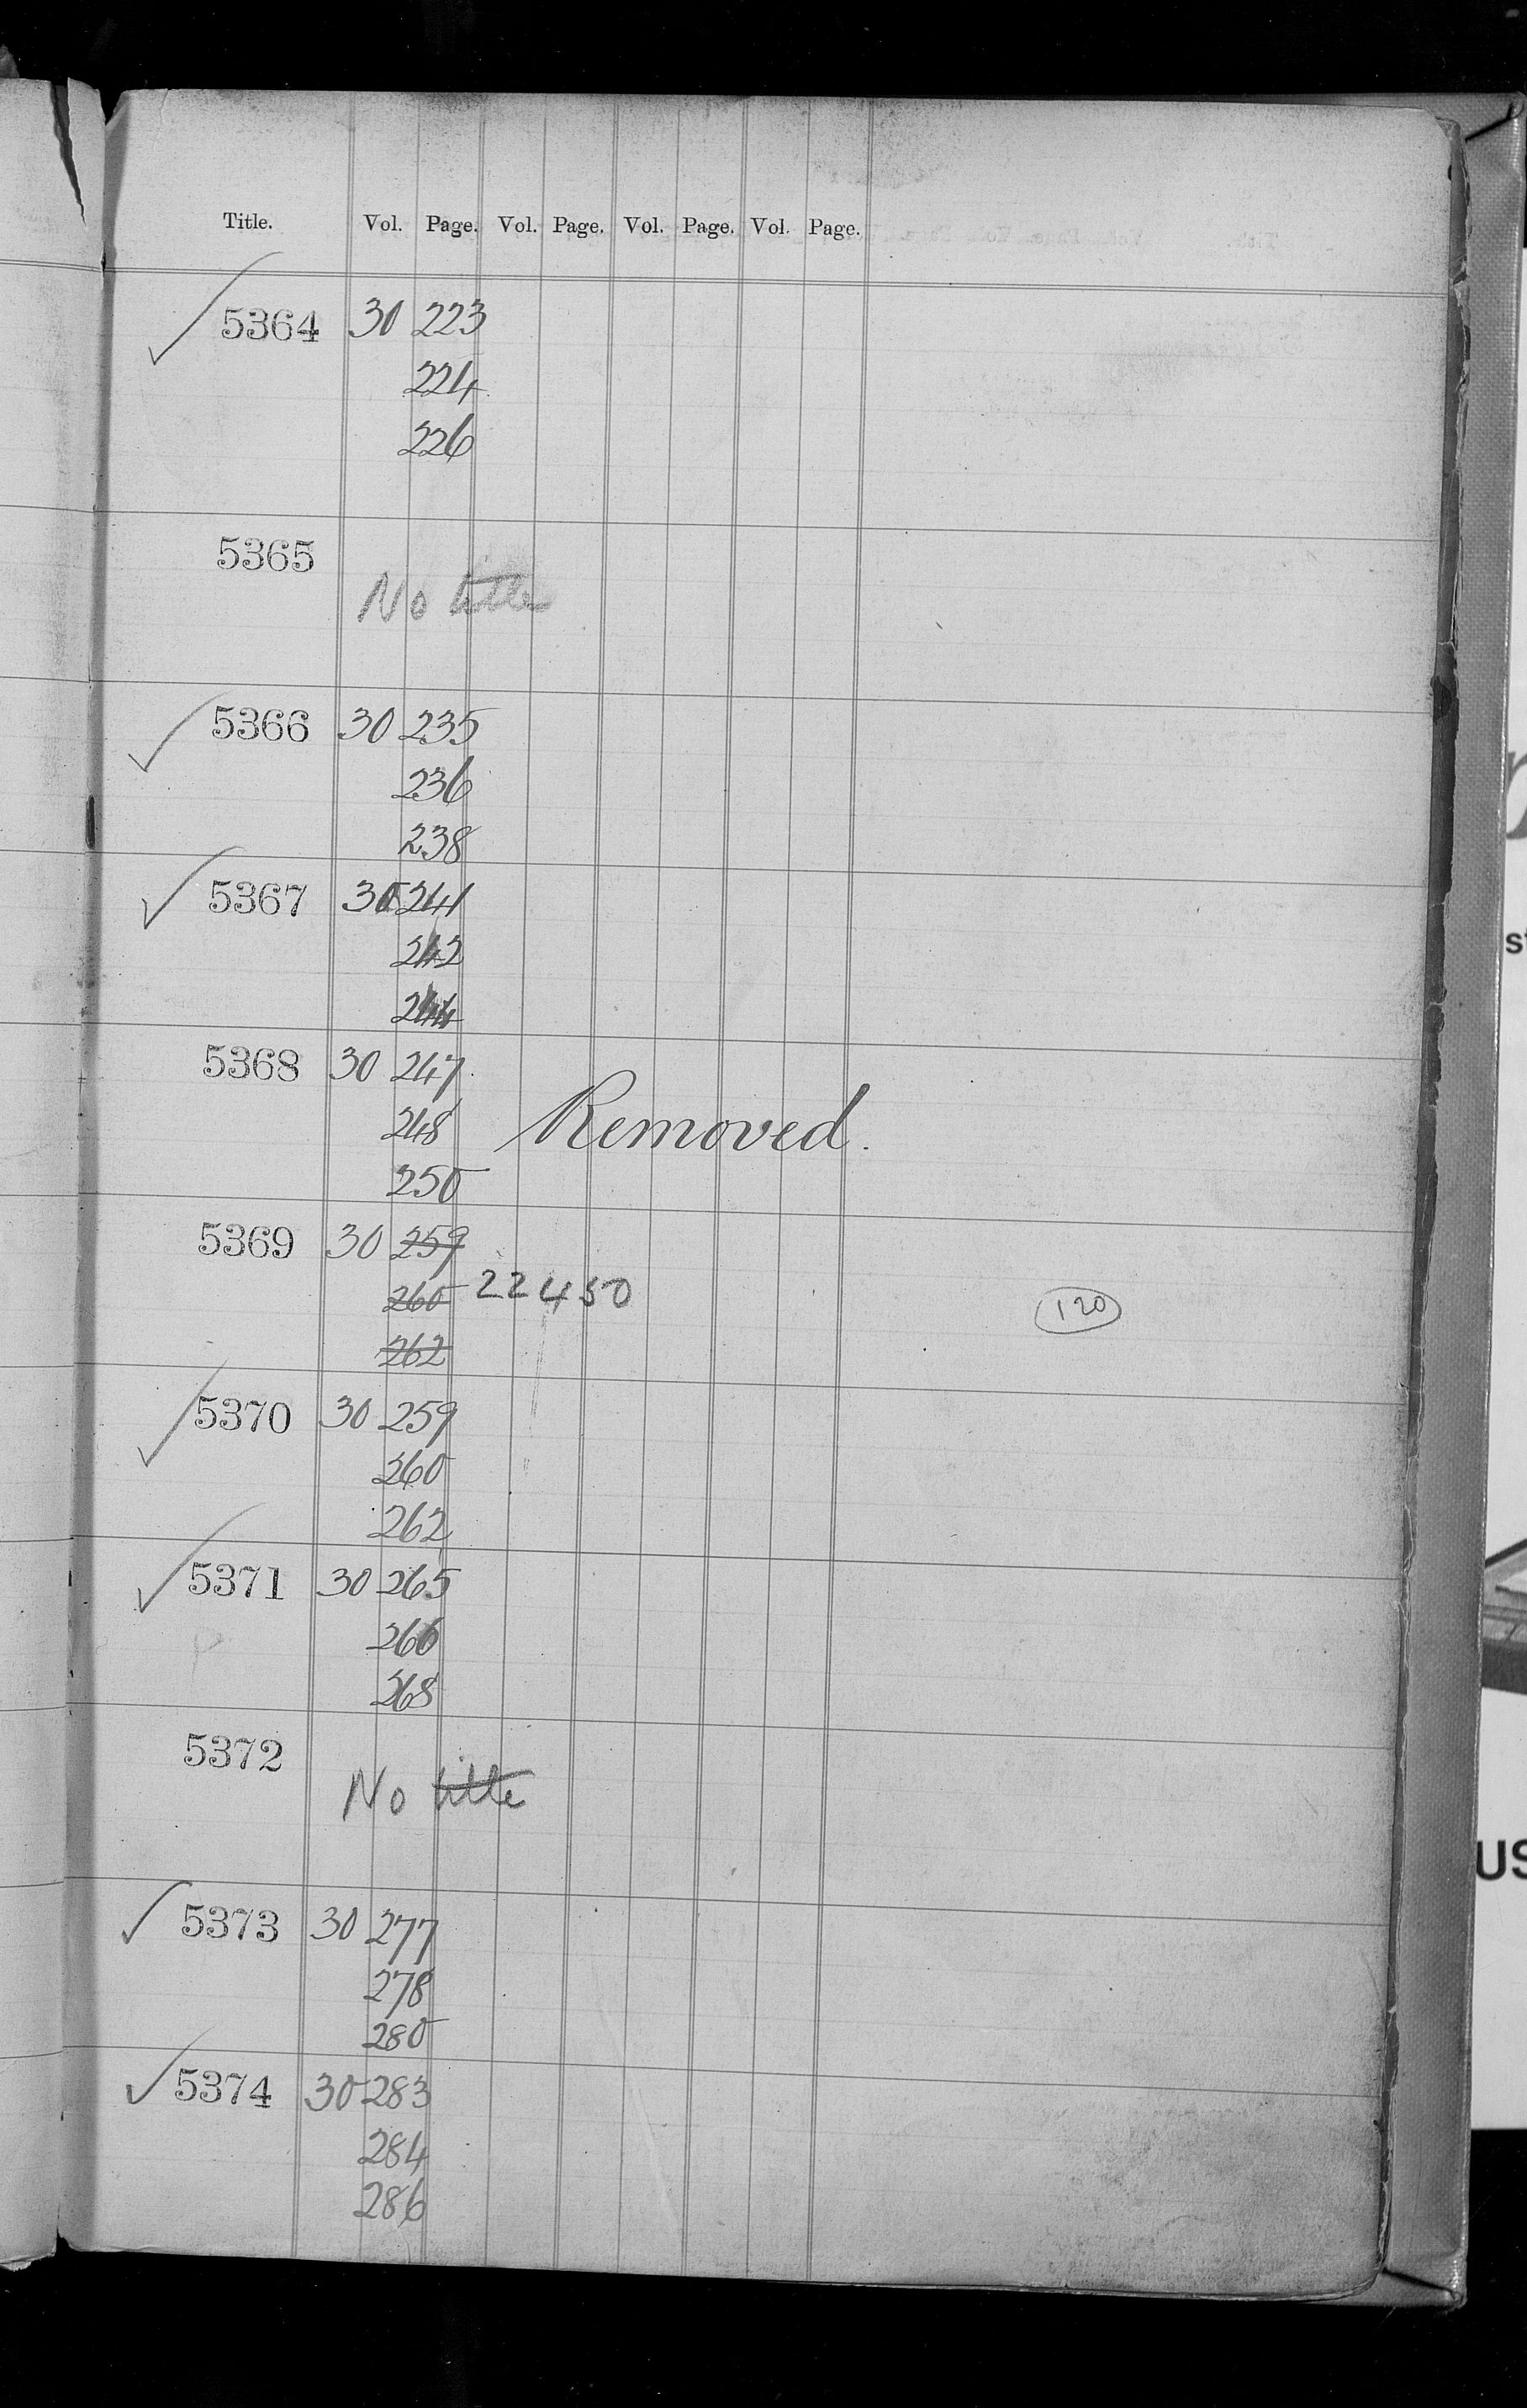 Title. Vol. Page. Vol. Page. Vol. Page. Vol. Page.
5364 30 223
224
226
5365
No title
5366 30 235
236
238
5367 30 241
242
244
5368 30 247
248 Removed.
250
5369 30 259
260 22450 120
262
5370 30 259
260
262
5371 30 265
266
268
5372
No title
5373 30 277
278
280
5374 30 283
284
286
US